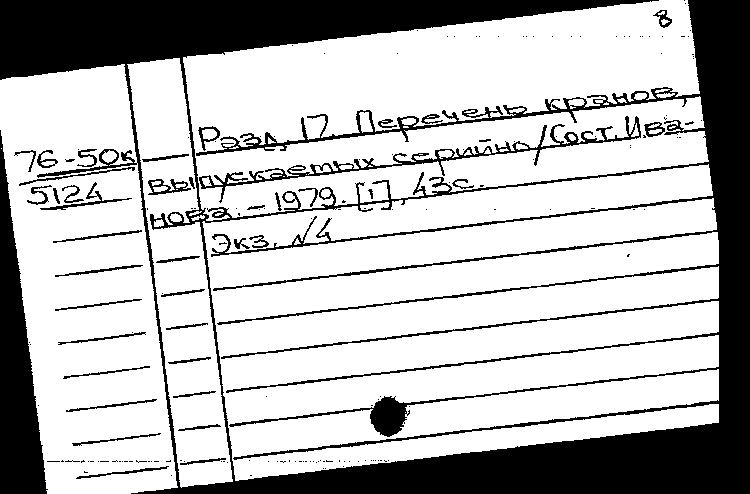 8
Разд. 17. Перечень кранов,
76-50к выпускаемых серийно / Сост. Ива-
5124 нова. - 1979. [1], 43с.
Экз. №4